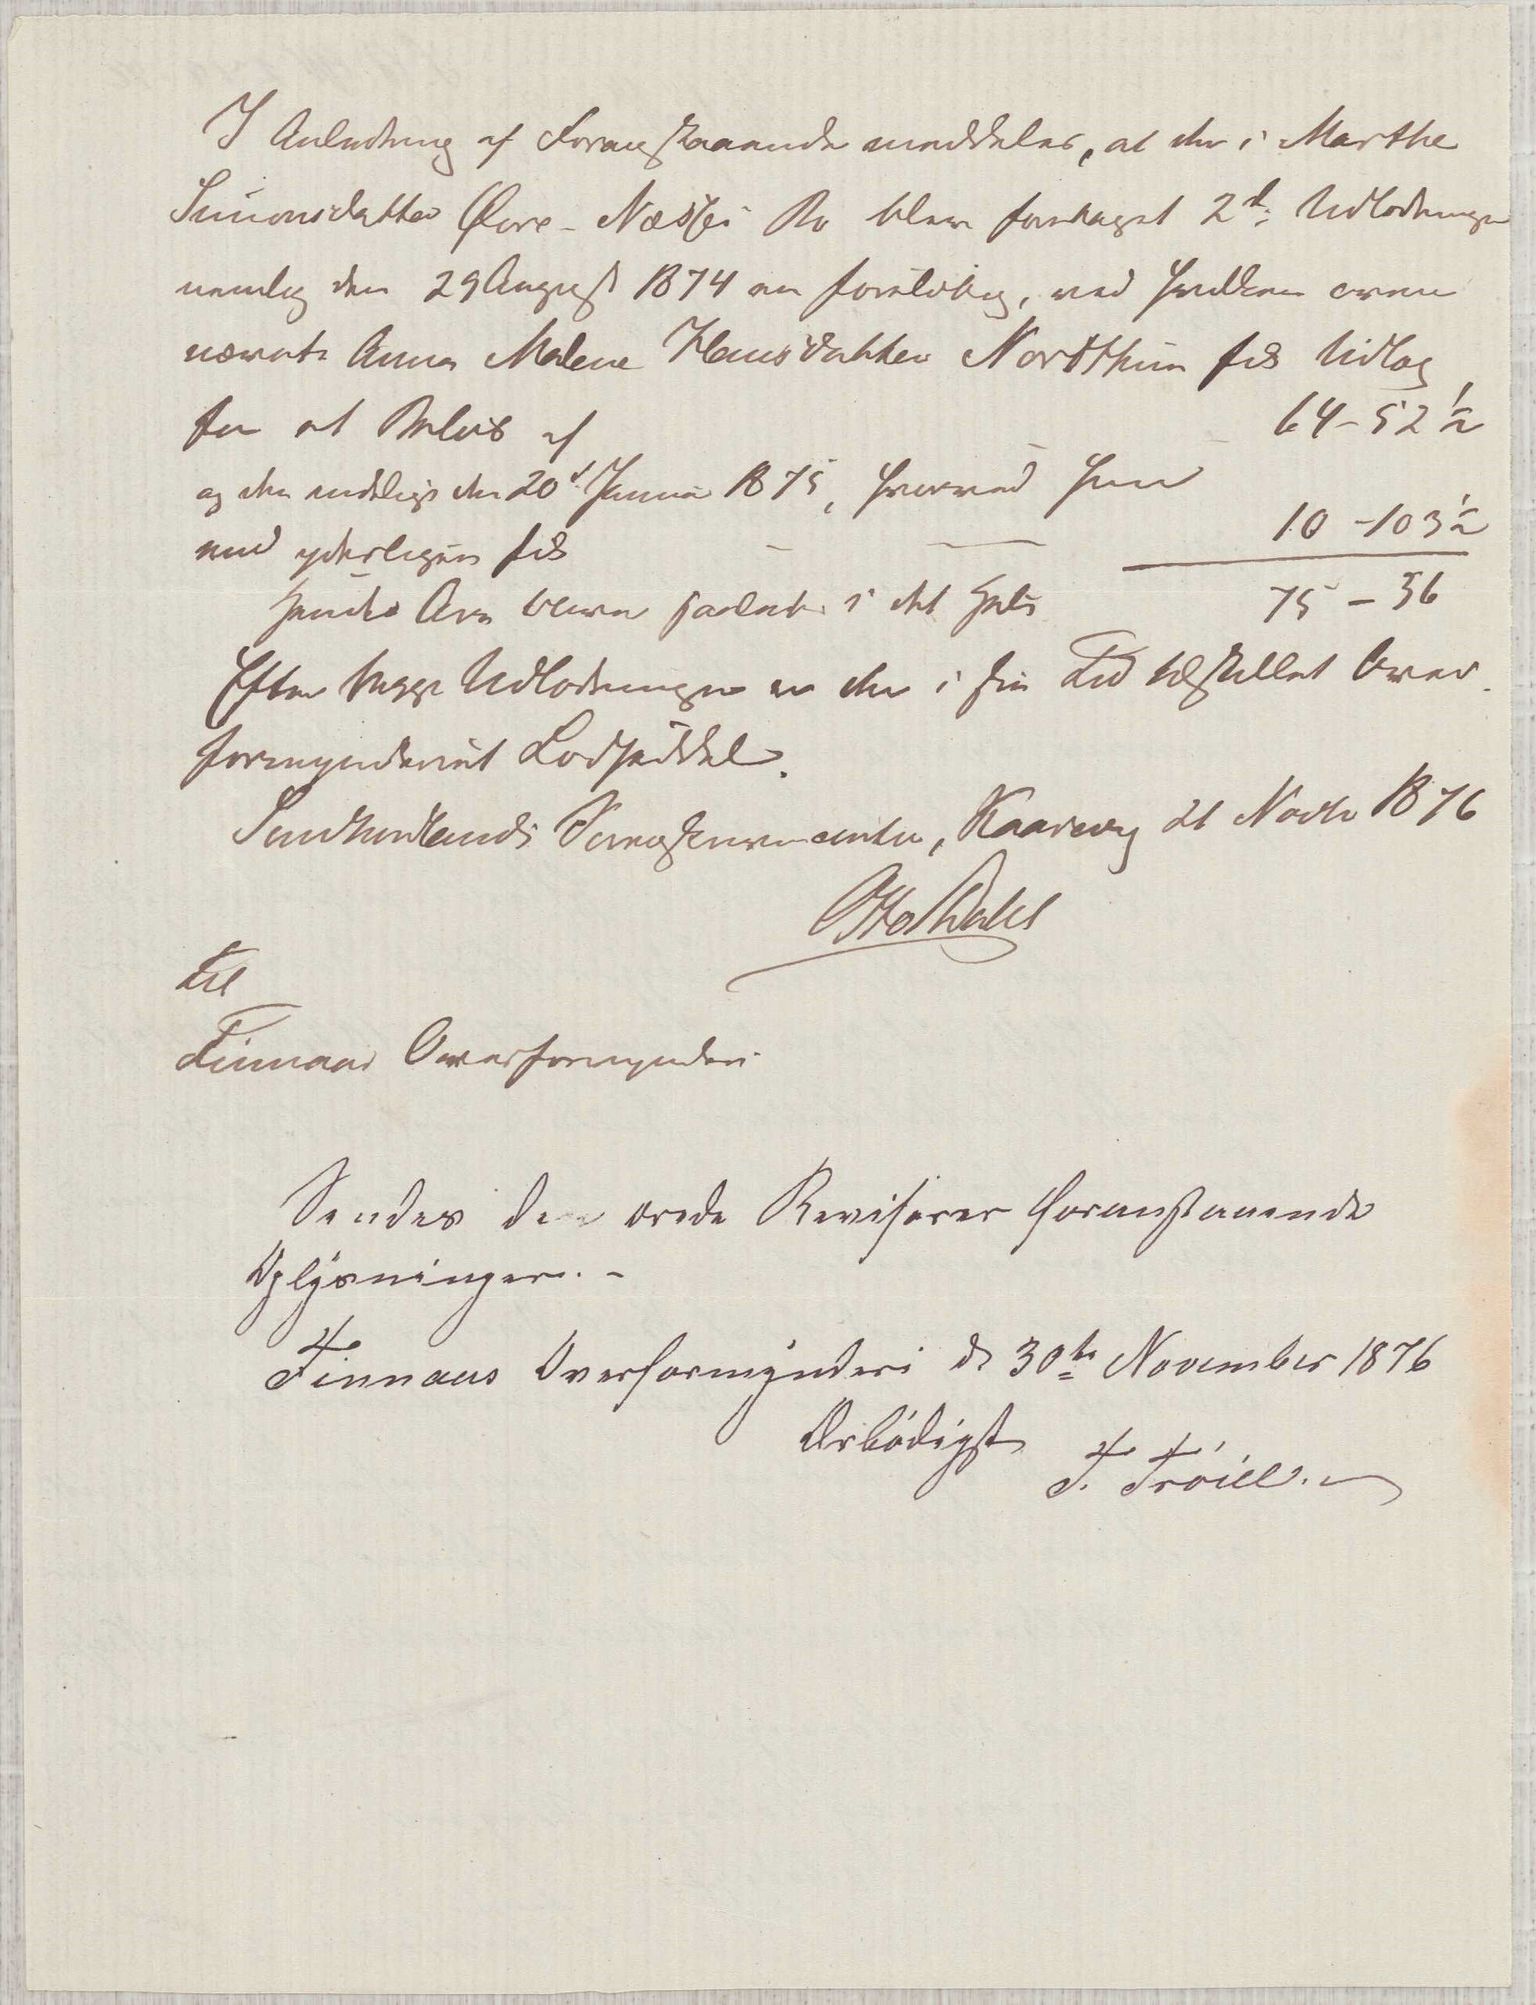 I Anledning af Foranstaaende meddeles, at der i Marthe
Simonsdatter Øvre-Næsses Bo blev foretaget 2de Udlodninger
nemlig den 29 August 1874 en foreløbig, ved hvilken oven
nævnte Anna Malene Hansdatter Nordthun fik Udlæg
for et Beløb af 64-52½
og den endelige den 20d Januar 1875, hvorved hun
end yderligere fik — — 10-103½
hendes Arv bliver saaledes i det Hele 75-36
Efter begge Udlodninger er der i sin Tid tilstillet Over
formynderiet Lodseddel.
Sundhordlands Sorenskriverembede, Kaarevig 21 Novbr 1876
Otto Dahl
Til
Finnaas Overformynderi
Sendes de ærede Revisorer foranstaaende
Oplysninger. -
Finnaas Overformynderi d 30te November 1876
Ærbödigst
F. Tröill.